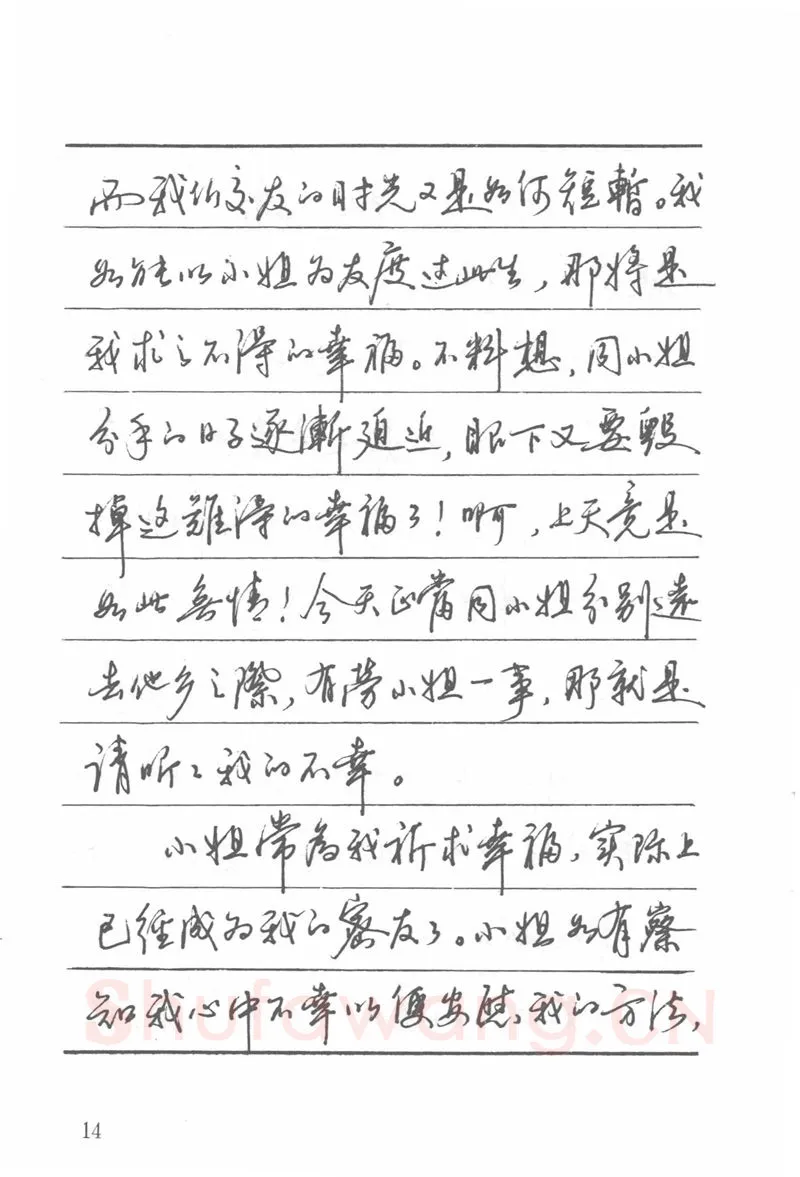 而我们交友的时光又是如何短暫。我
如能以小姐为友度过此生，那將是
我求之不得的幸福。不料想，同小姐
分手的日子逐漸迫近，眼下又要毁
掉这難得的幸福了！啊，上天竟是
如此無情！今天正當同小姐分别遠
去他乡之際，有劳小姐一事，那就是
请听听我的不幸。
小姐常為我祈求幸福，实际上
已经成为我的密友了。小姐如有察
知我心中不幸以便安慰我的方法，
Shufawang.CN
14